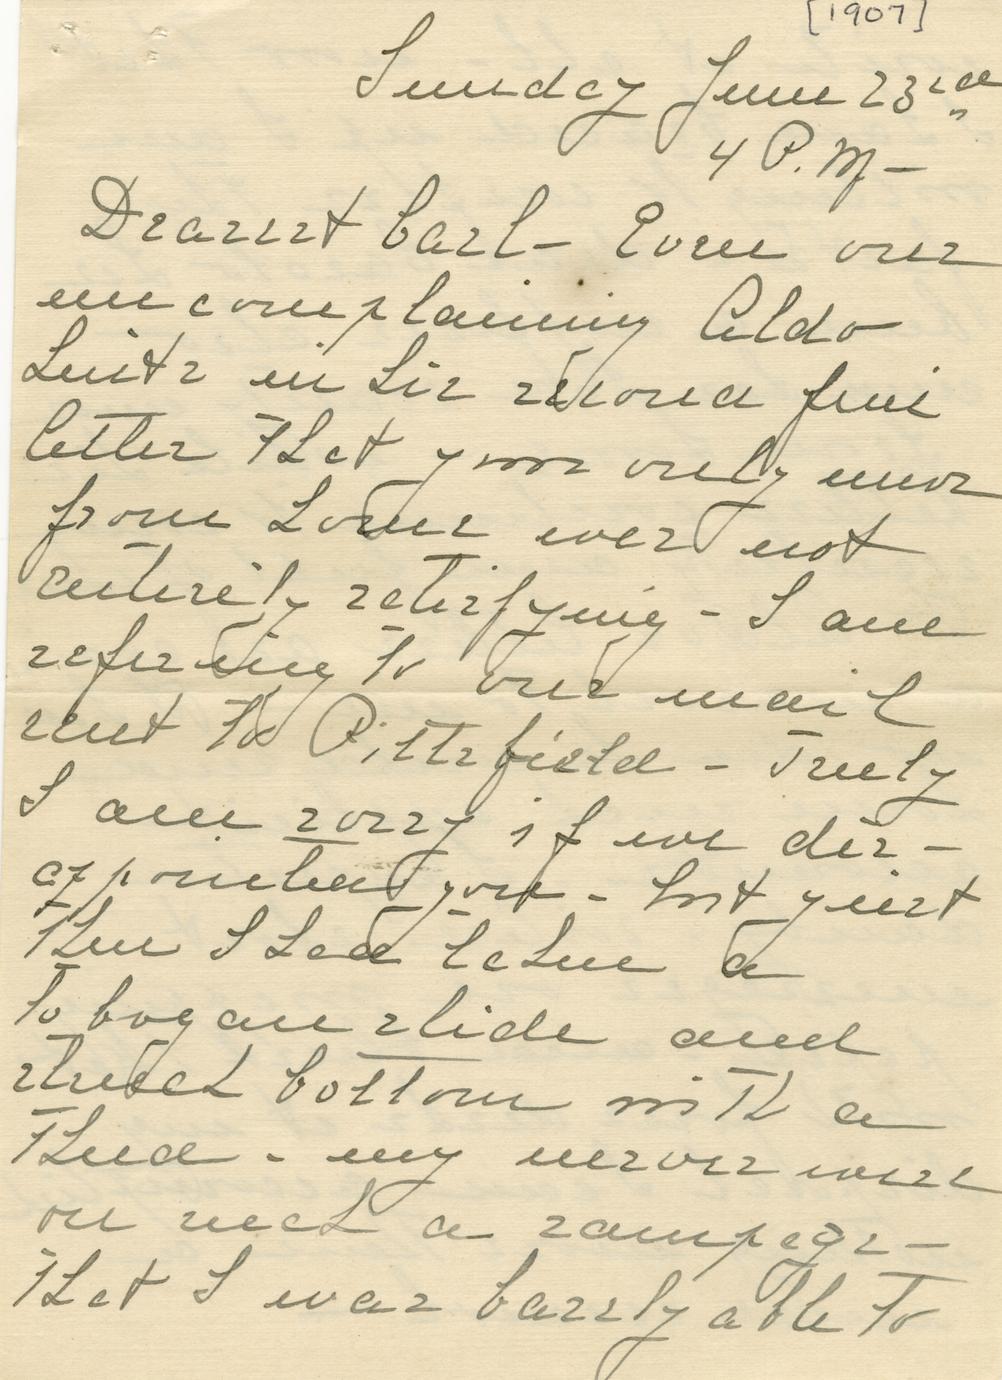 [1907]
Sunday June 23rd
4 P.M—
Dearest Carl— Even our
uncomplaining Aldo
hints in his second fine
letter that your only news
from home was not
entirely satisfying — I am
refering to our mail
sent to Pittsfield — Truly
I am sorry if we dis-
appointed you — but just
then I had taken a
tobogan slide and
struck bottom with a
thud — my nerves were
on such a rampage —
that I was barely able to